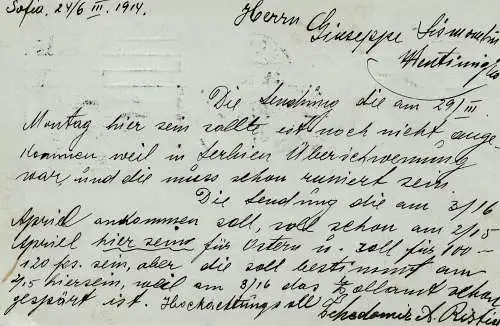 Sofia, 24/6 III. 1914.
Herrn
Giuseppe
Ventimiglia
Die Sendung die am 29/III
Montag hier sein sollte ist noch nicht ange-
kommen weil in Serbien Überschwemung
war, und die muss schon runiert sein.
Die Sendung die am 3/16
April ankommen soll, soll schon am 2/15
Apriel hier sein für Ostern u. soll für 100-
120 frs. sein, aber die soll bestimmt am
2/15 hiersein, weil am 3/16 das Zollamt schon
gespärt ist. Hochachtungsvoll